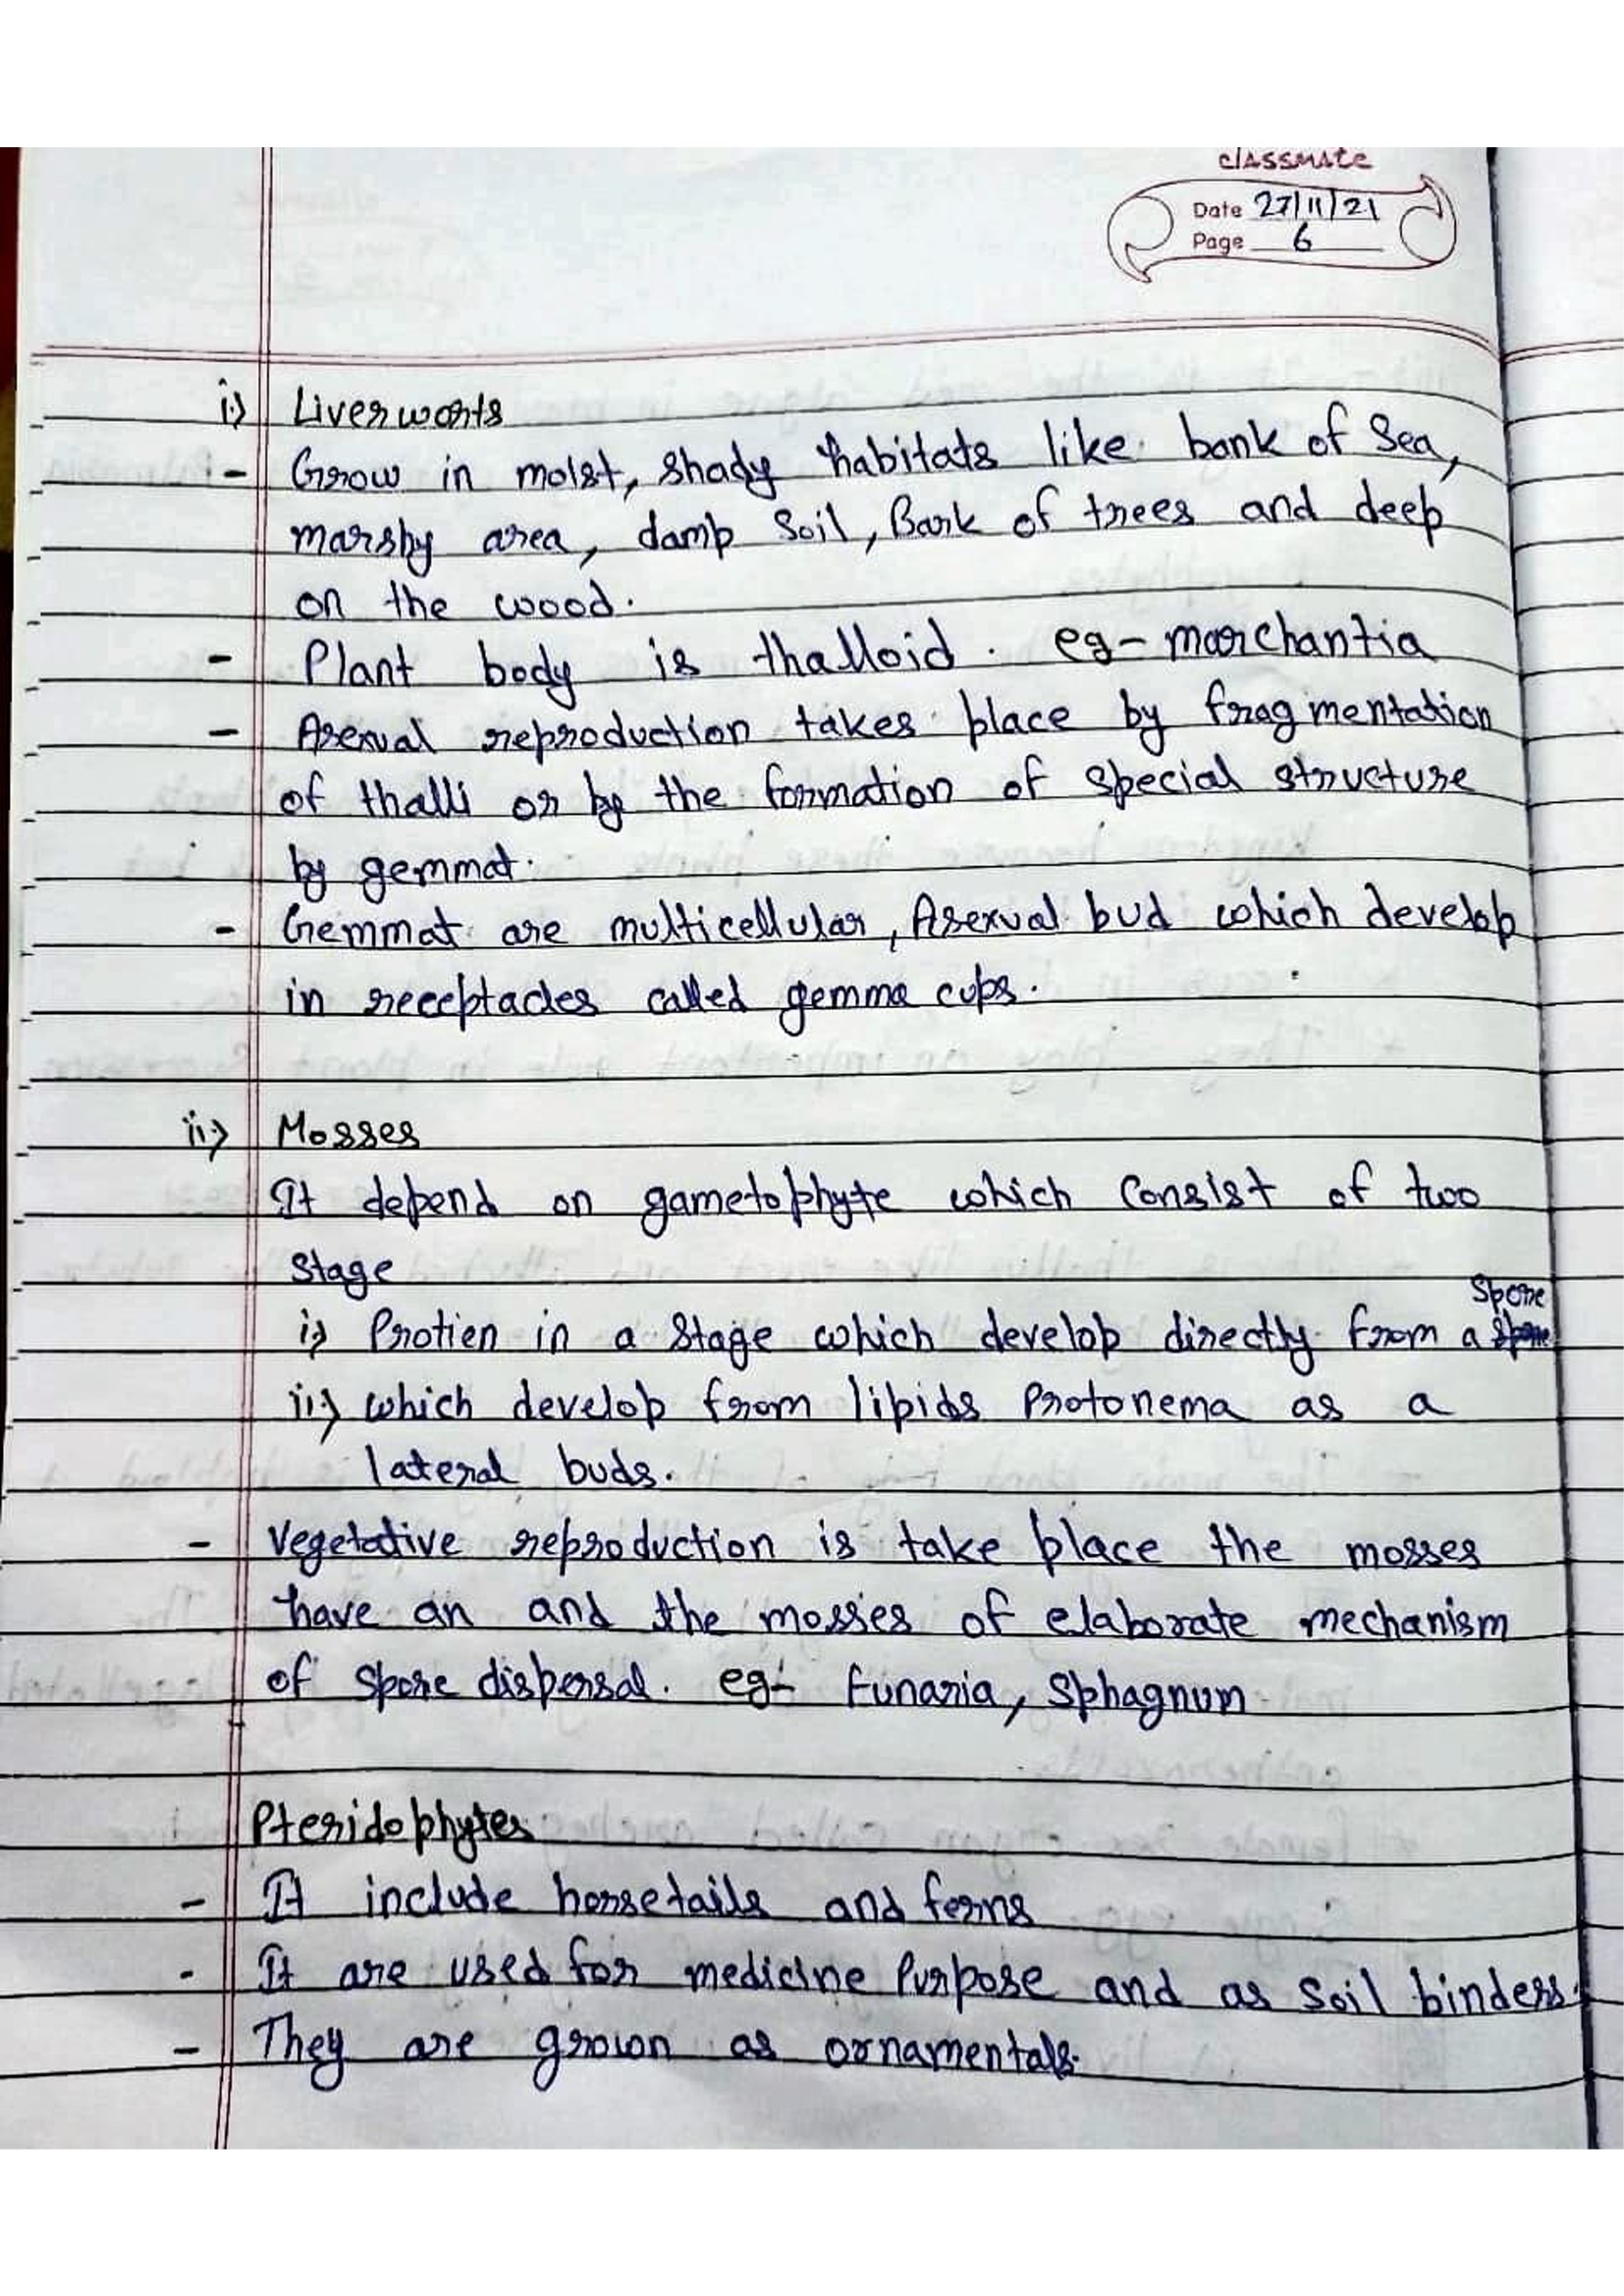 classmate
Date 27/11/21
Page 6
i) Liverworts
- Grow in moist, shady habitats like bank of Sea,
marshy area, damp Soil, Bark of trees and deep
on the wood.
- Plant body is thalloid. eg- marchantia
- Asexual reproduction takes place by fragmentation
of thalli or by the formation of special structure
by gemmat.
- Gemmat are multicellular, Asexual bud which develop
in receptacles called gemma cups.
ii) Mosses
It depend on gametophyte which consist of two
Stage
Spore
i) Protien in a stage which develop directly from a
ii) which develop from lipids Protonema as a
lateral buds.
- Vegetative reproduction is take place the mosses
have an and the mosses of elaborate mechanism
of spore dispersal. eg- Funaria, Sphagnum
Pteridophytes
- It include horsetails and ferns
- It are used for medicine Purpose and as soil binders.
- They are grown as ornamentals.